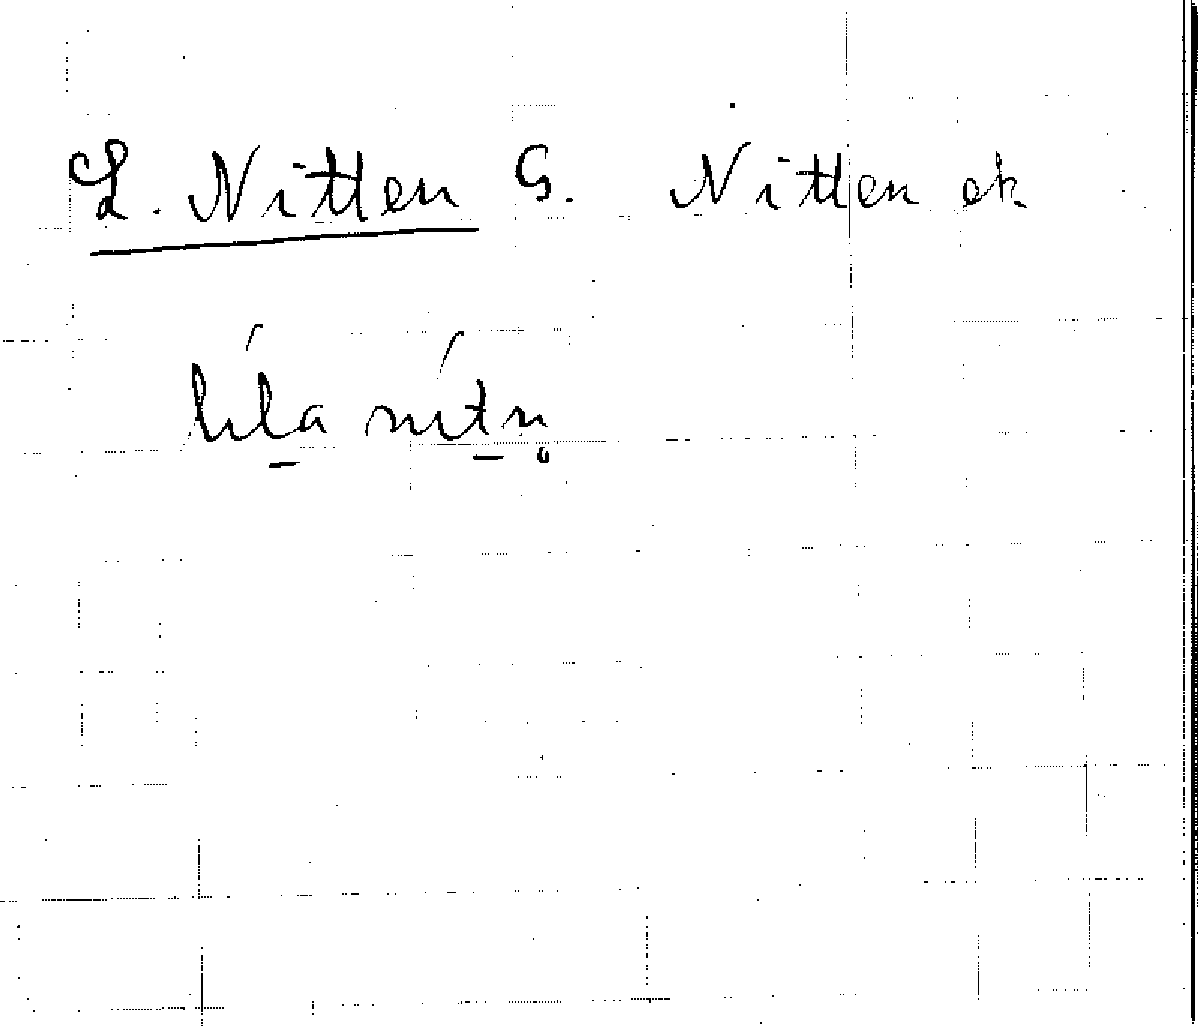 L. Nitten G. Nitten ek
lıla nıtn̥